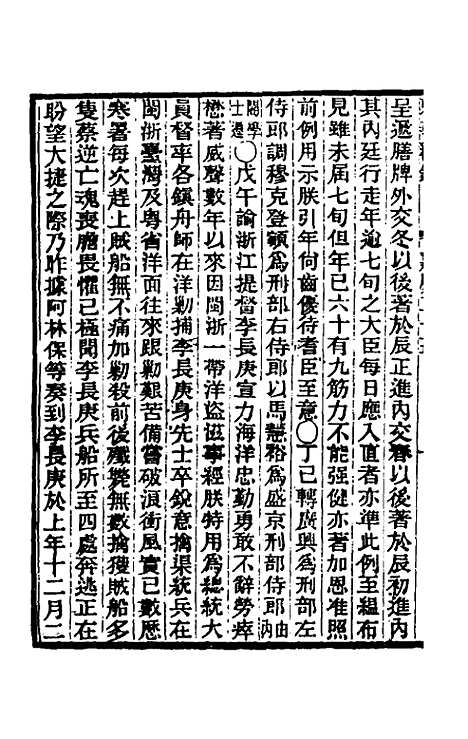 呈遞膳牌外交冬以後著於辰正進內交春以後著於辰初進內
其內廷行走年逾七旬之大臣每日應入值者亦準此例至緼布
見雖未屆七旬但年已六十有九筋力不能强健亦著加恩准照
前例用示朕引年尙齒優待耆臣至意〇丁巳轉廣興爲刑部左
侍郎調穆克登額爲刑部右侍郎以馬慧裕爲盛京刑部侍郎由內
閣學士遷〇戊午諭浙江提督李長庚宣力海洋忠勤勇敢不辭勞瘁
懋著威聲數年以來因閩浙一帶洋盜滋事經朕特用爲總統大
員督率各鎮舟師在洋勦捕李長庚身先士卒銳意擒渠統兵在
閩浙臺灣及粵省洋面往來跟勦艱苦備嘗破浪衝風實已數歷
寒暑每次趕上賊船無不痛加勦殺前後殲斃無數擒獲賊船多
隻蔡逆亡魂喪膽畏懼已極聞李長庚兵船所至四處奔逃正在
盼望大捷之際乃昨據阿林保等奏到李長庚於上年十二月二